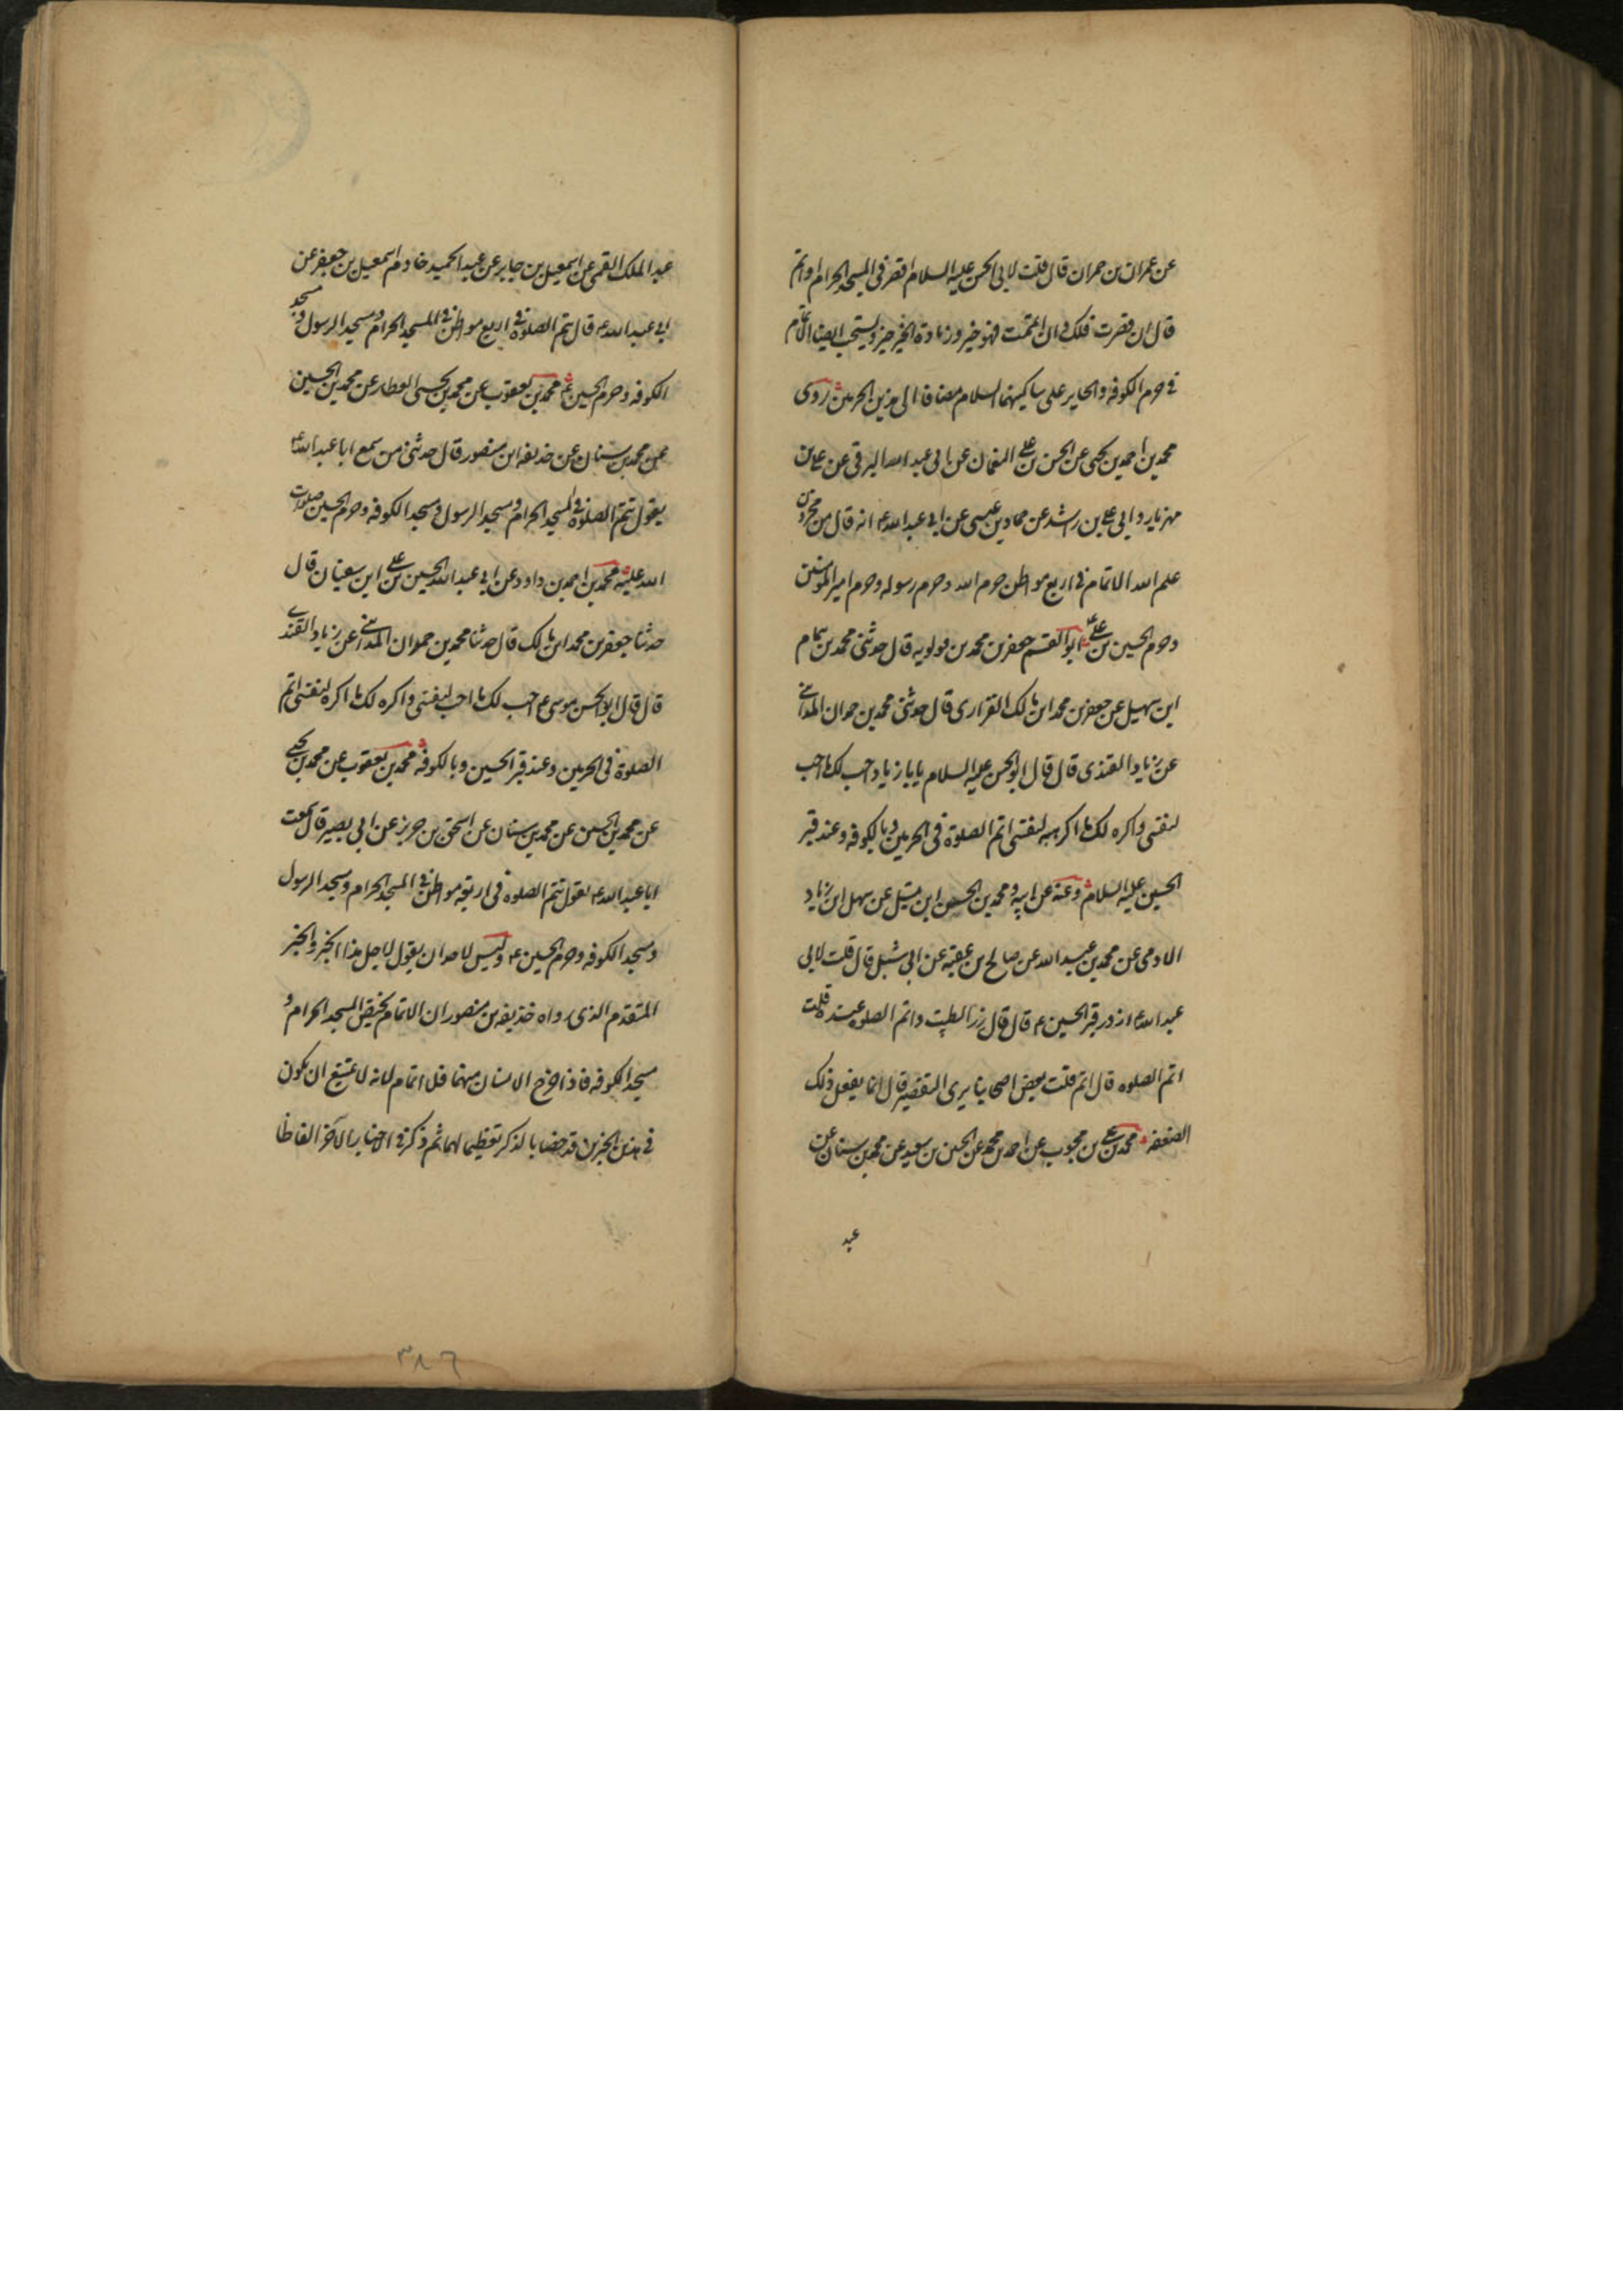 عن عمران بن حمران قال قلت لابي الحسن عليه السلام اقصر في المسجد الحرام او اتم
قال ان قصرت فلك وان اتممت فهو خير وزيادة الخير خير ويستحب ايضا الاتمام
في حرم الكوفه والحاير على ساكنيهما السلام مضافا الى هذين الحرمين روى
محمد بن احمد بن يحيى عن الحسن بن علي النعمان عن ابي عبد الله البرقي عن علي بن
مهزيار وابي علي بن راشد عن حماد بن عيسى عن ابي عبد الله ع انه قال من مخزون
علم الله الاتمام في اربع مواطن حرم الله وحرم رسوله وحرم امير المؤمنين
وحرم الحسين بن علي ع ابو القسم جعفر بن محمد بن قولويه قال حدثني محمد بن همام
ابن سهيل عن جعفر بن محمد ابن مالك الفزارى قال حدثني محمد بن حمدان المدائني
عن زياد القندى قال قال ابو الحسن عليه السلام يا با زياد احب لك ما احب
لنفسي واكره لك ما اكرهه لنفسي اتم الصلوة في الحرمين وبالكوفه وعند قبر
الحسين عليه السلام وعنه عن ابيه ومحمد بن الحسن ابن متيل عن سهل ابن زياد
الادمى عن محمد بن عبد الله عن صالح بن عقبه عن ابي شبل قال قلت لابي
عبد الله ع ازور قبر الحسين ع قال قال زر الطيب واتم الصلوه عنده قلت
اتم الصلوه قال اتم قلت بعض اصحابنا يرى التقصير قال انما يفعل ذلك
الضعفه محمد بن علي بن محبوب عن احمد بن محمد عن الحسين بن سعيد عن محمد بن سنان عن
عبد
عبد الملك القمي عن اسمعيل بن جابر عن عبد الحميد خادم اسمعيل بن جعفر عن
ابي عبد الله ع قال تتم الصلوة في اربع مواطن في المسجد الحرام ومسجد الرسول ومسجد
الكوفه وحرم الحسين ع محمد بن يعقوب عن محمد بن يحيى العطار عن محمد بن الحسين
عن محمد بن سنان عن حذيفه ابن منصور قال حدثني من سمع ابا عبد الله ع
يقول تتم الصلوة في المسجد الحرام ومسجد الرسول ومسجد الكوفه وحرم الحسين صلوات
الله عليه محمد بن احمد بن داود عن ابي عبد الله الحسين بن علي ابن سفيان قال
حدثنا جعفر بن محمد ابن مالك قال حدثنا محمد بن حمدان المدائني عن زياد القندى
قال قال ابو الحسن موسى ع احب لك ما احب لنفسي واكره لك ما اكره لنفسي اتم
الصلوة في الحرمين وعند قبر الحسين وبالكوفه محمد بن يعقوب عن محمد بن يحيى
عن محمد بن الحسين عن محمد بن سنان عن اسحق بن حريز عن ابي بصير قال سمعت
ابا عبد الله ع يقول تتم الصلوه في اربعة مواطن في المسجد الحرام ومسجد الرسول
ومسجد الكوفه وحرم الحسين ع وليس لاحد ان يقول لاجل هذا الخبر والخبر
المتقدم الذى رواه حذيفه بن منصور ان الاتمام يختص المسجد الحرام و
مسجد الكوفه فاذا خرج الانسان منهما فلا اتمام لانه لا يمتنع ان يكون
في هذين الخبرين قد خصا بالذكر تعظيما لهما ثم ذكر في الاخبار الاخر الفاظا
٣٨٦